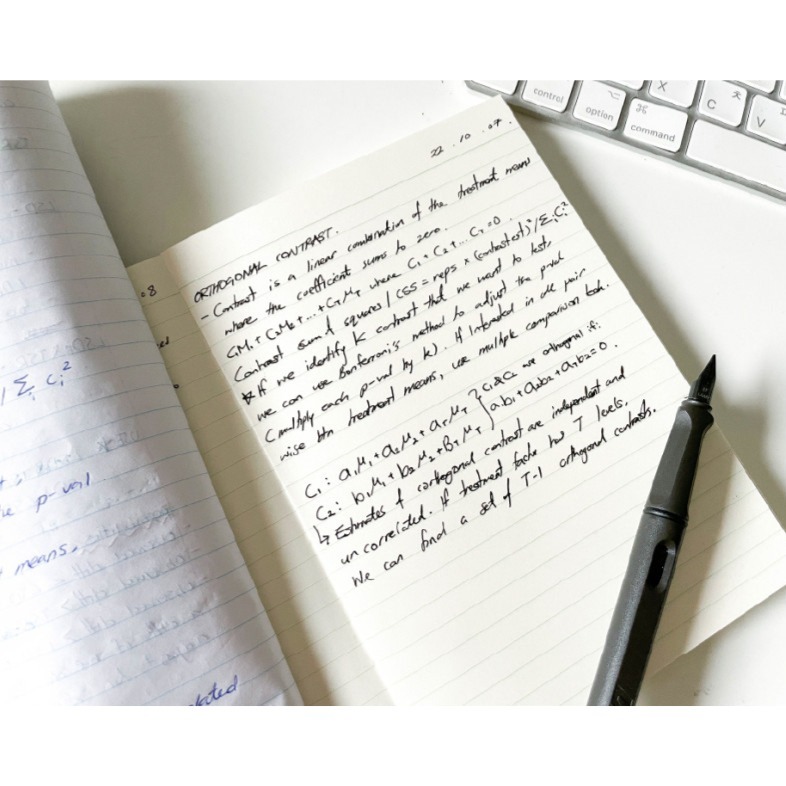 control
option
⌘
command
X
C
V
22 . 10 . 07 .
ORTHOGONAL CONTRAST.
- Contrast is a linear combination of the treatment means
where the coefficient sums to zero.
C₁M₁ + C₂M₂ + ... + CTμT where C₁ + C₂ + ... CT = 0 .
Contrast sum of squares / CSS = reps × (contrast est)² / Σᵢ Cᵢ²
* If we identify K contrast that we want to test,
we can use Bonferroni's method to adjust the p-val
(multiply each p-val by k). If interested in all pair
wise btn treatment means, use multiple comparison tech.
C₁ : a₁μ₁ + a₂μ₂ + aTμT } C₁ & C₂ are orthogonal if:
C₂ : b₁μ₁ + b₂μ₂ + BTμT } a₁b₁ + a₂b₂ + aTbT = 0 .
↳ Estimates of orthogonal contrast are independent and
uncorrelated. If treatment factor has T levels,
We can find a set of T-1 orthogonal contrasts.
.8
/ Σᵢ Cᵢ²
p-val
means,